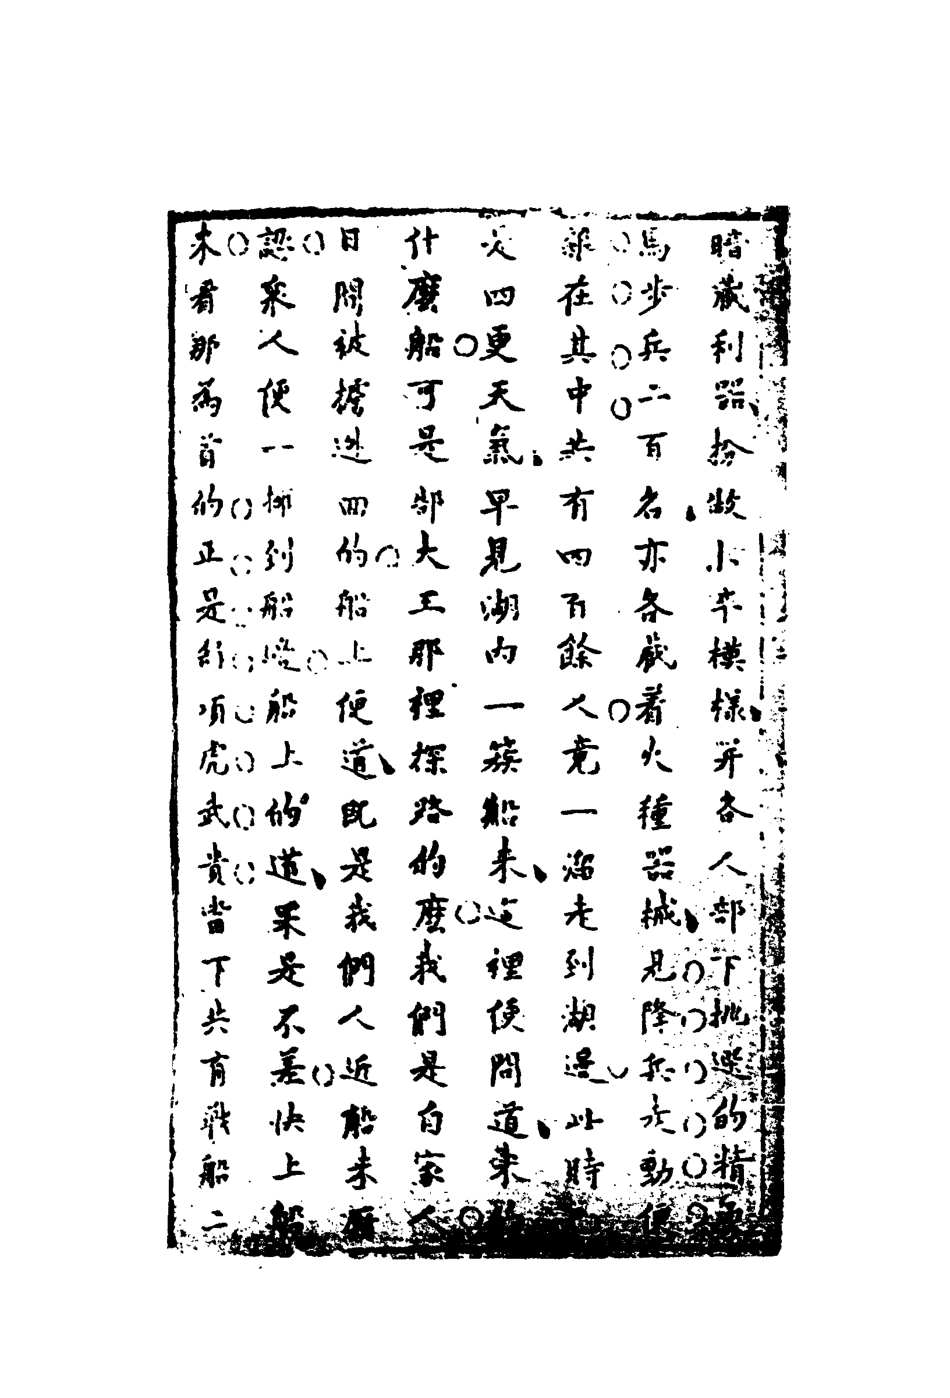 暗藏利器扮做小卒模樣并各人部下挑選的精
馬步兵二百名亦各藏着火種器械見降兵走動便
雜在其中共有四百餘人竟一溜走到湖邊此時
是四更天氣早見湖內一簇船來這裡便問道來的
什麽船可是部大王那裡探路的麽我們是自家人
日間被擄逃回的船上便道既是我們人近船來廝
認衆人便一擁到船邊船上的道果是不差快上船
來看那為首的正是項虎武貴當下共有戰船二